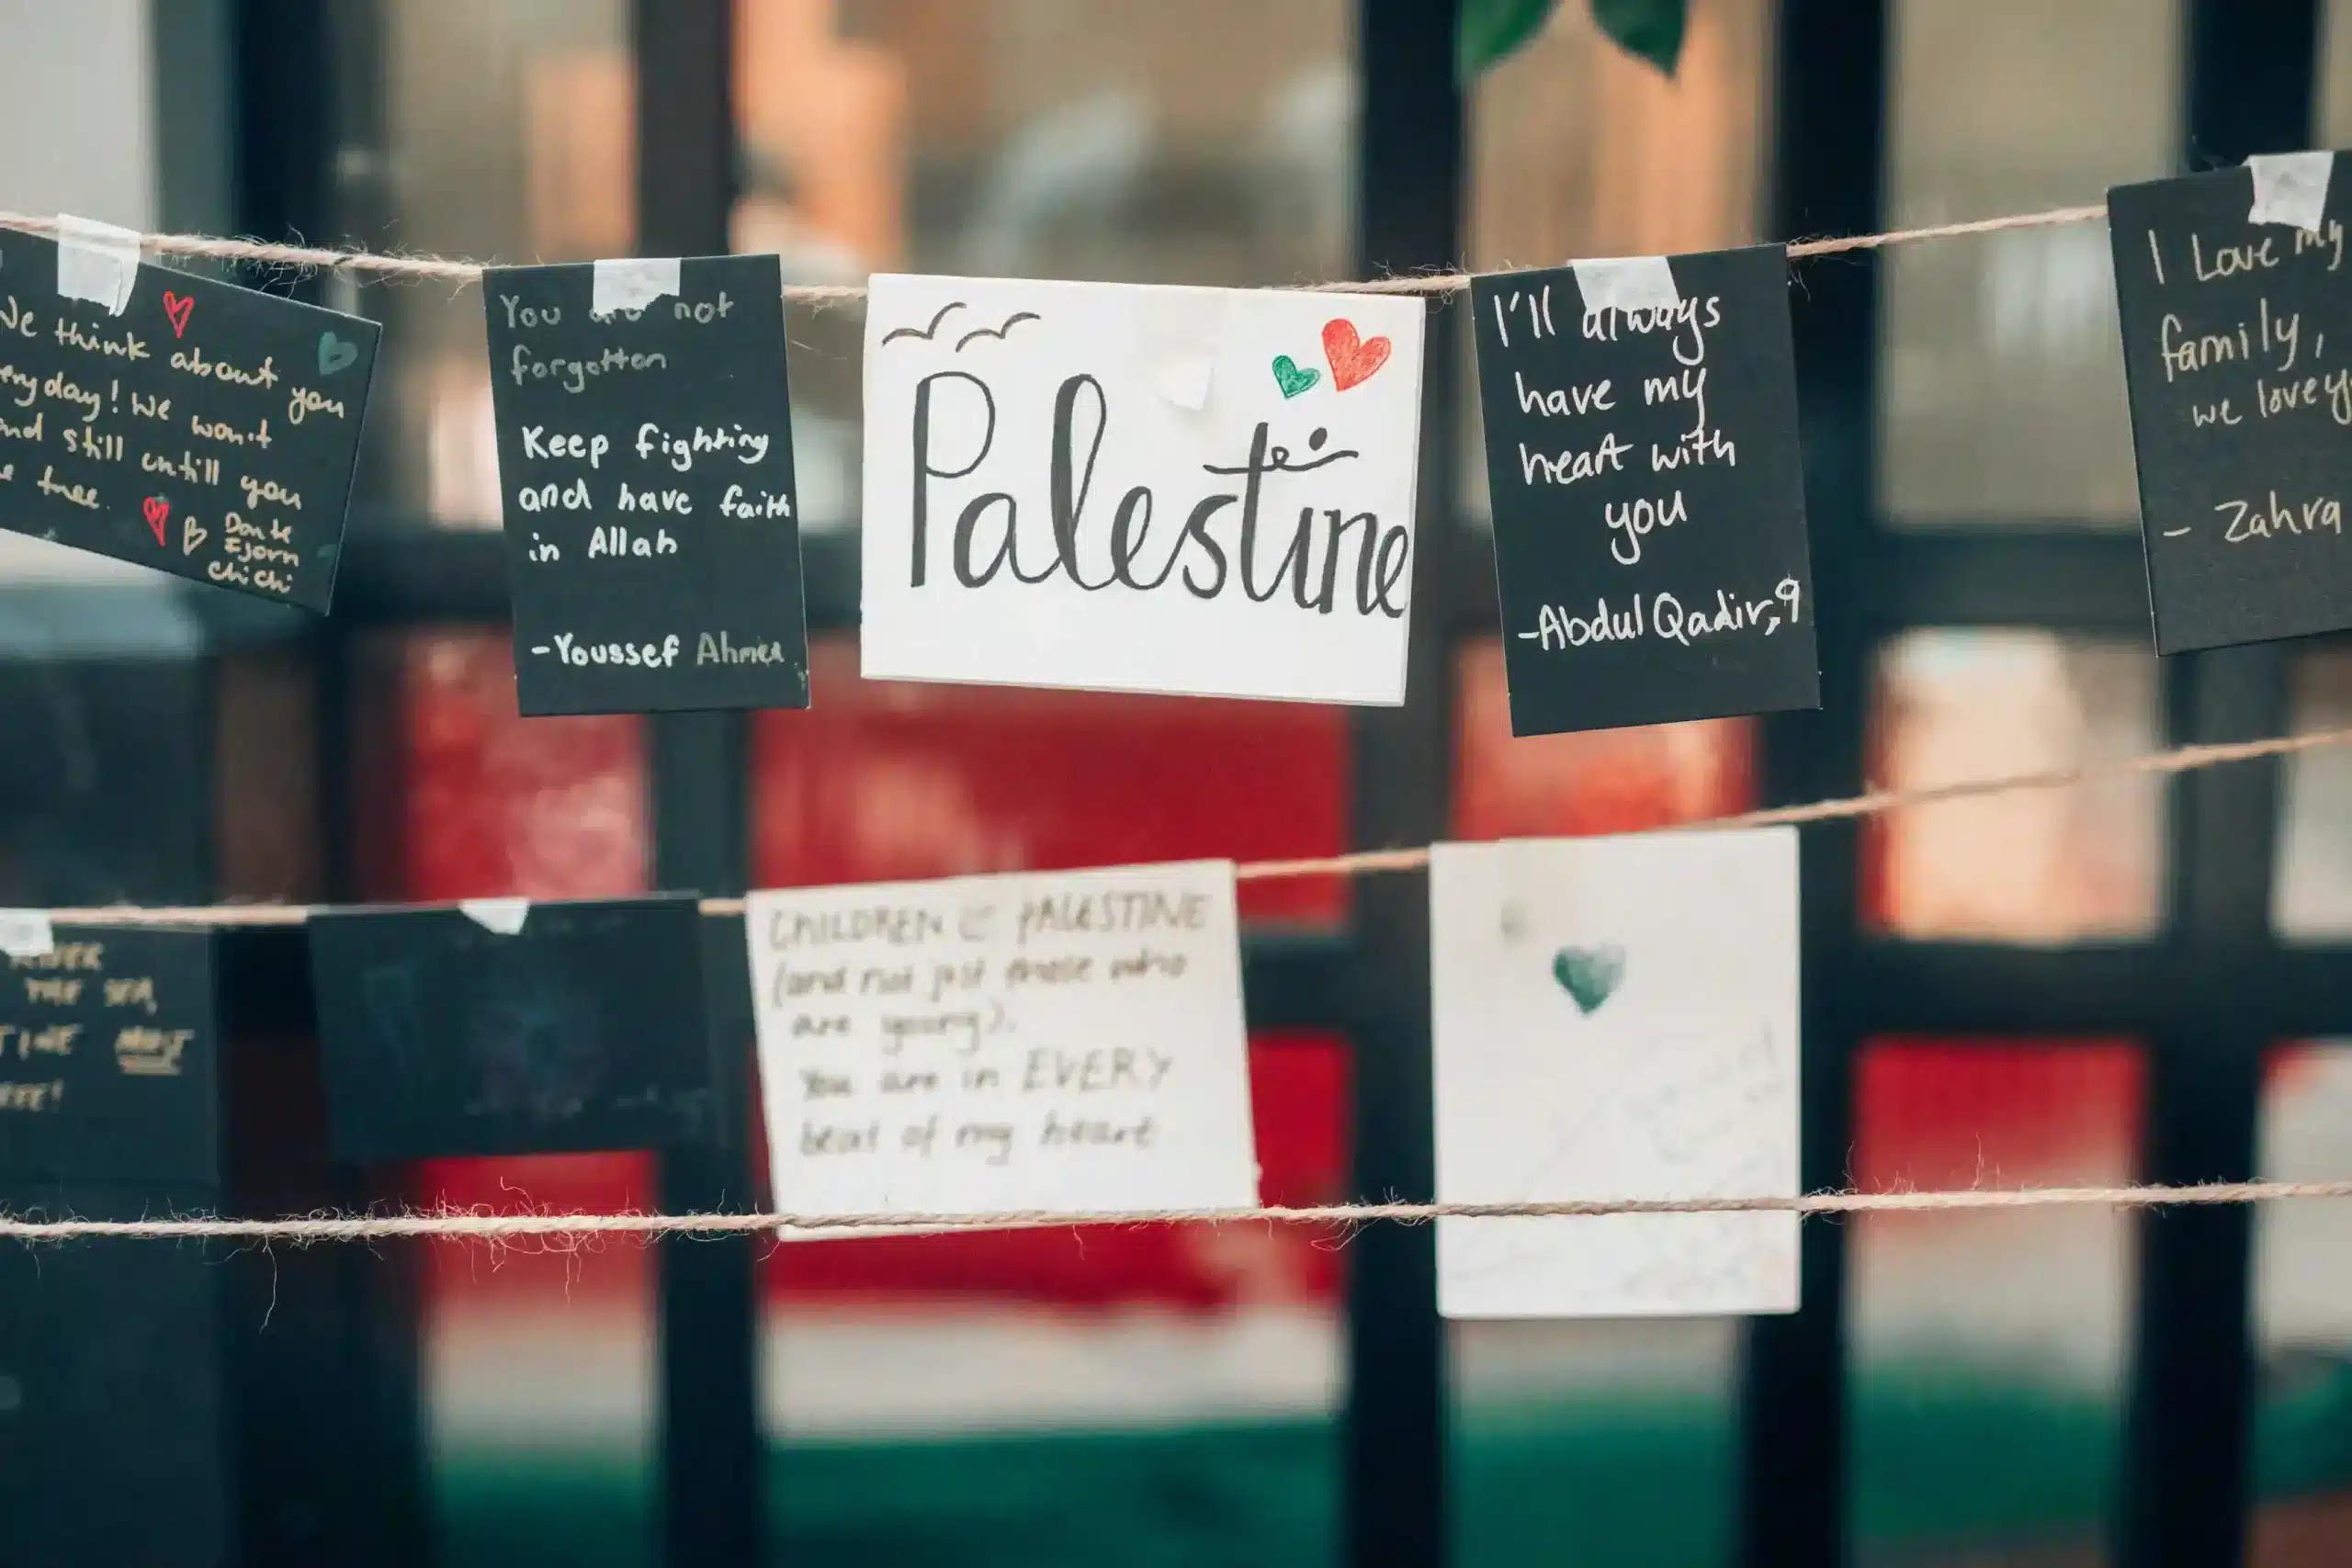 We think about you
everyday! We won't
stand still untill you
are free.
Dante
Ejorn
chichi
You are not
forgotten
Keep fighting
and have faith
in Allah
-Youssef Ahmed
Palestine
I'll always
have my
heart with
you
-Abdul Qadir, 9
I Love my
family,
we love
- Zahra
THE SEA,
MUST
CHILDREN OF PALESTINE
(and not just those who
are young).
You are in EVERY
beat of my heart